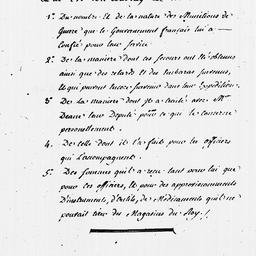 1.° Du nombre & de la nature des Munitions de
Guerre que le Gouvernement français lui a
Confié pour leur service.
2.° De la manière dont ces secours ont été obtenus
ainsi que des retards et des embaras survenus,
et qui peuvent encore survenir dans leur Expédition.
3.° De la manière dont il a traité avec Mr.
Deane leur Député pour ce que le concerne
personnellement.
4. De celle dont il l'a fait pour les officiers
qui l'accompagnent.
5.° Des sommes qu'il a reçu tant pour lui que
pour ces officiers, & pour des approvisionnements
D'instruments, d'outils, de Médicaments qu'il ne
pouvait tirer des Magasins du Roy.